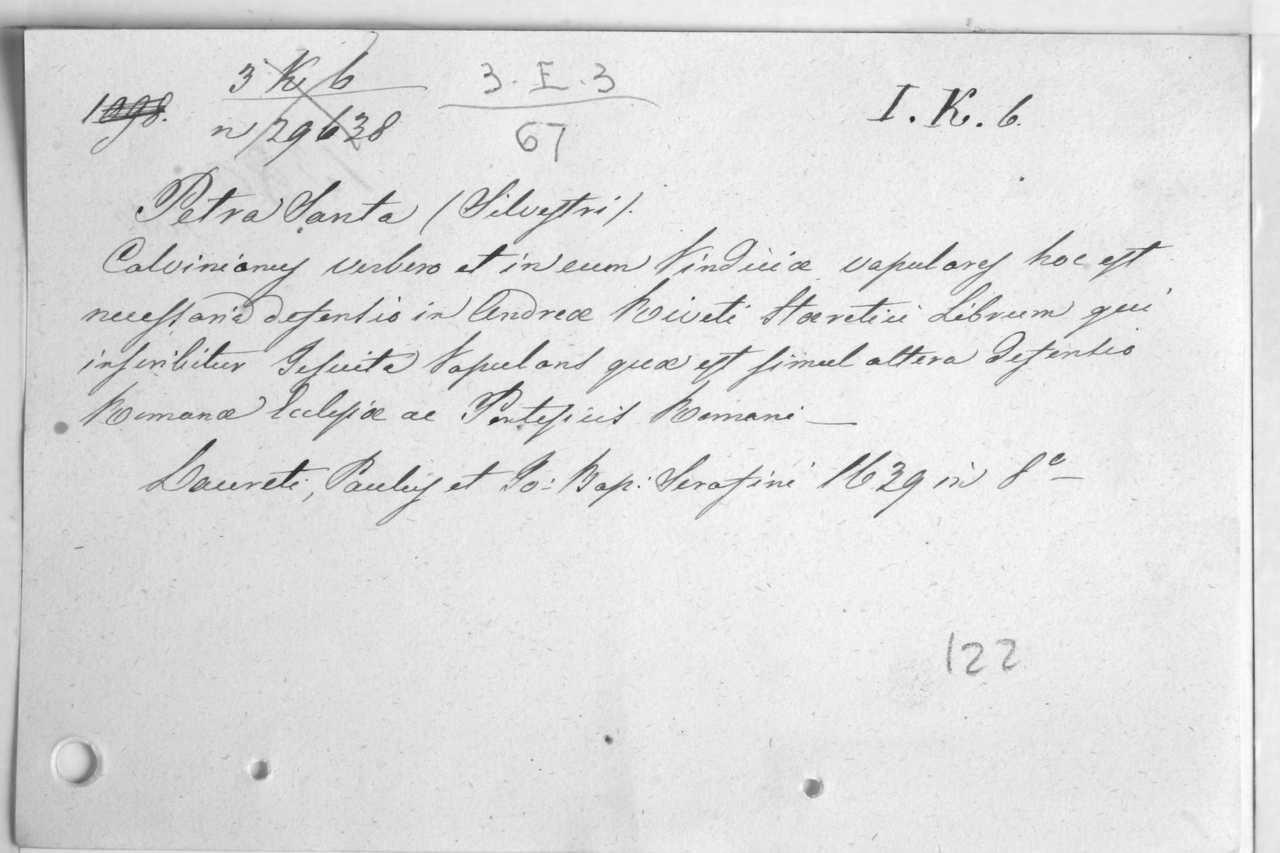 1098.
3 K 6
n 29638
3. E. 3
67
I. K. 6.
Petra Santa (Silvestri).
Calvinianus verbero et in eum Vindiciæ vapulares hoc est
necessaria defensio in Andreæ Riveti Hæretici Librum qui
inscribitur Jesuita Vapulans quæ est simul altera defensio
Romanæ Ecclesiæ ac Pontificis Romani —
Laureti, Paulus et Jo: Bap: Serafini 1639 in 8º —
122